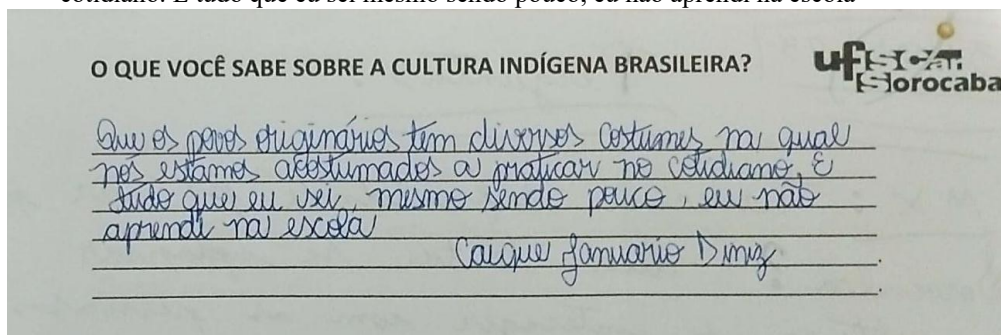 cotidiano. E tudo que eu sei mesmo sendo pouco, eu não aprendi na escola
O QUE VOCÊ SABE SOBRE A CULTURA INDÍGENA BRASILEIRA?
ufscar
Sorocaba
Que os povos originários tem diversos costumes na qual
nós estamos acostumados a praticar no cotidiano, E
tudo que eu sei, mesmo sendo pouco, eu não
aprendi na escola
Caique Januario Diniz